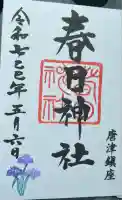 唐津鎮座
春日神社
令和七乙巳年五月六日